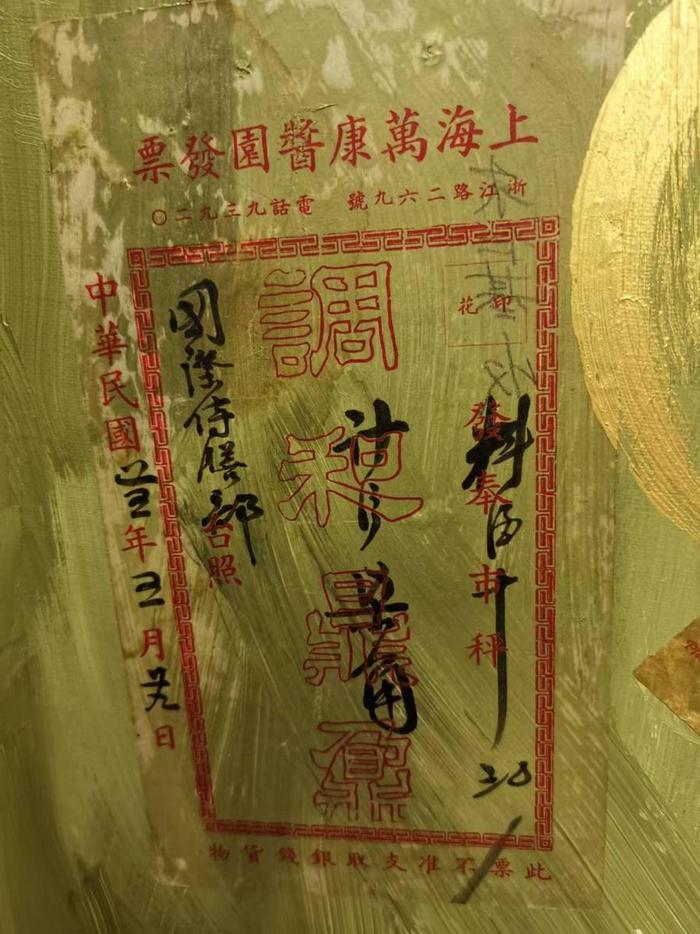 上海萬康醬園發票
浙江路二六九號　電話九三九二〇
印花
發奉市秤
料酒
調和鼎鼐
國際侍膳部台照
中華民國年三月廿九日
此票不准支取銀錢貨物